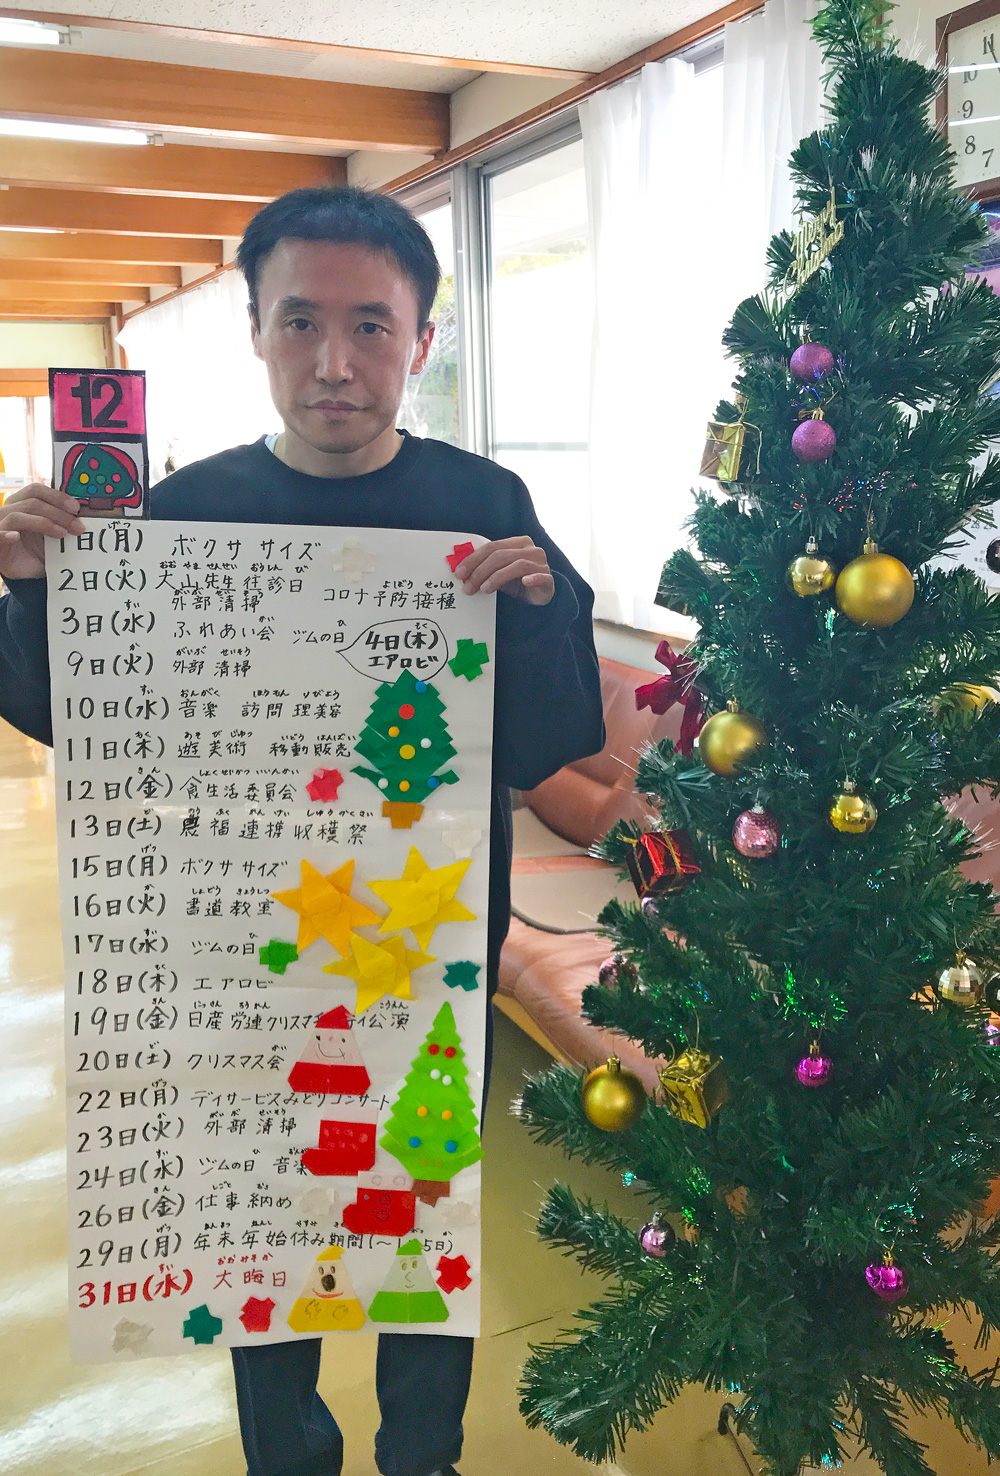 12
1日(月) ボクササイズ
2日(火) 大山先生往診日
外部清掃 コロナ予防接種
3日(水) ふれあい会 ジムの日
4日(木)
エアロビ
9日(火) 外部清掃
10日(水) 音楽 訪問理美容
11日(木) 遊美術 移動販売
12日(金) 食生活委員会
13日(土) 農福連携収穫祭
15日(月) ボクササイズ
16日(火) 書道教室
17日(水) ジムの日
18日(木) エアロビ
19日(金) 日産労連クリスマ ティ公演
20日(土) クリスマス会
22日(月) デイサービスみどりコンサート
23日(火) 外部清掃
24日(水) ジムの日 音楽
26日(金) 仕事納め
29日(月) 年末年始休み期間(〜1 5日)
31日(水) 大晦日
11
10
9
8
7